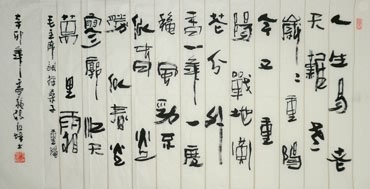 人生易老
天難老
歲〻重陽
今又重
陽戰地黃
花分外
香一年一度
秋風勁不
似春光
勝似春光
寥廓江天
萬里霜
毛主席詞採桑子 重陽
辛卯年